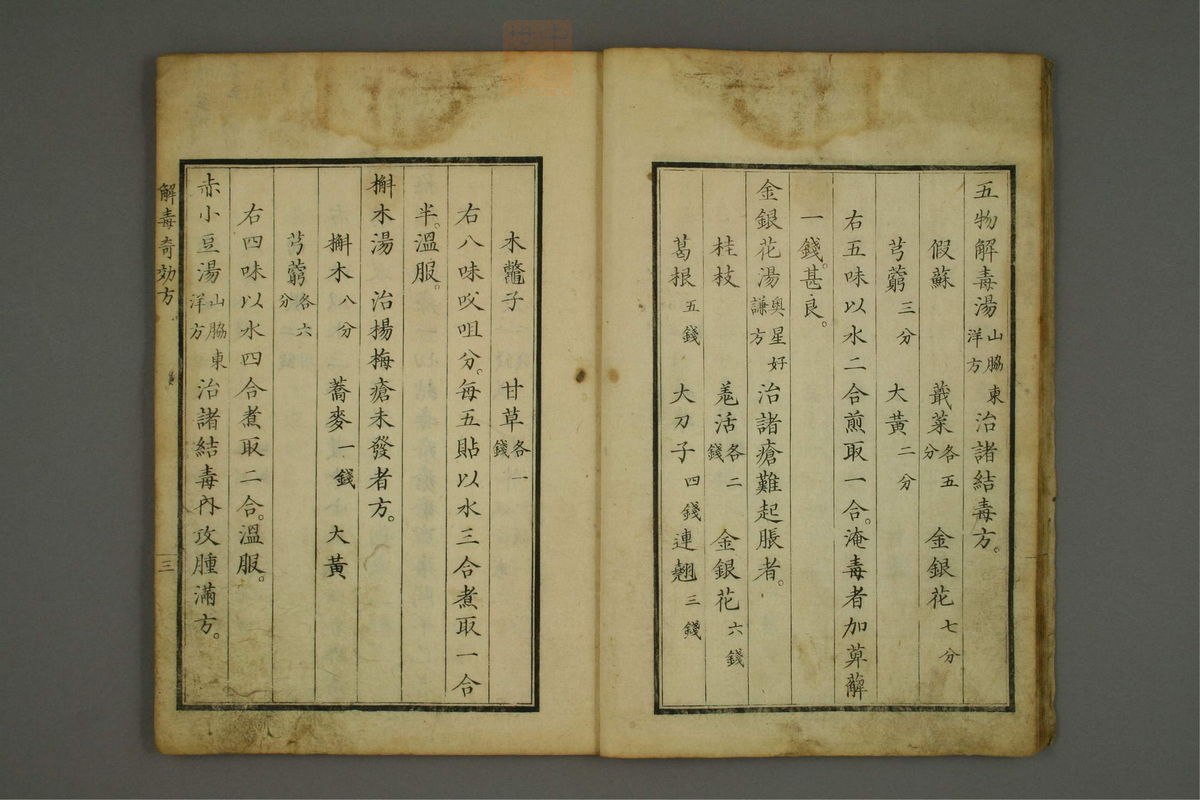 五物解毒湯山脇東洋方治諸結毒方。
假蘇 蕺菜各五分 金銀花七分
芎藭三分 大黃二分
右五味以水二合煎取一合。淹毒者加萆薢
一錢。甚良。
金銀花湯奥星好謙方治諸瘡難起脹者。
桂枝 羗活各二錢 金銀花六錢
葛根五錢 大刀子四錢 連翹三錢
木鼈子 甘草各一錢
右八味㕮咀分。每五貼以水三合煮取一合
半。溫服。
槲木湯 治楊梅瘡未發者方。
槲木八分 蕎麥一錢 大黃
芎藭各六分
右四味以水四合煮取二合。溫服。
赤小豆湯山脇東洋方治諸結毒內攻腫滿方。
解毒奇効方 三